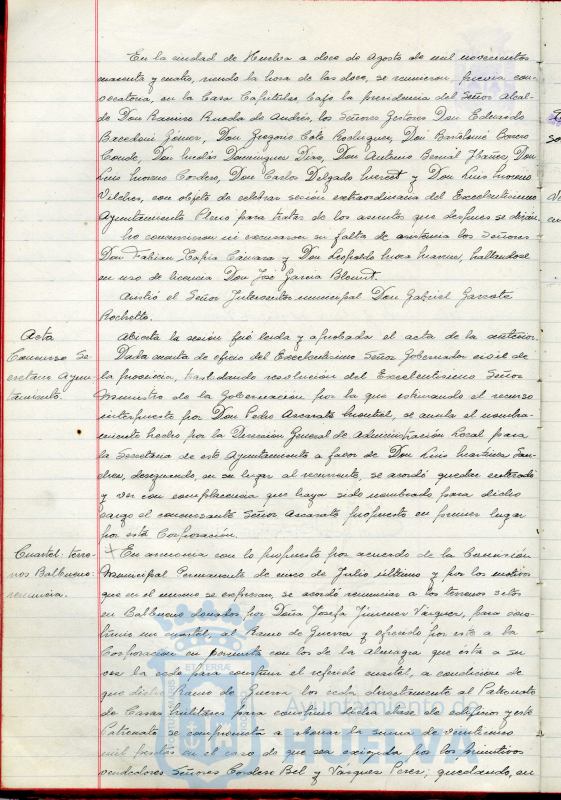 En la ciudad de Huelva a doce de Agosto de mil novecientos
cuarenta y cuatro, siendo la hora de las doce, se reunieron, previa con-
vocatoria, en la Casa Capitular bajo la presidencia del Señor Alcal-
de Don Ramiro Rueda de Andrés, los Señores Gestores Don Eduardo
Gómez, Don Gregorio Coto Rodríguez, Don Bartolomé Borrero
Conde, Don Domínguez Díaz, Don Antonio Bernál Ibáñez, Don
Luis Moreno Cordero, Don Carlos Delgado y Don Luis Moreno
Vilches, con objeto de celebrar sesión extraordinaria del Excelentísimo
Ayuntamiento Pleno para tratar de los asuntos que despues se dirán.
No concurrieron ni excusaron su falta de asistencia los Señores
Don Fabian Tapia Cámara y Don Leopoldo Mora, hallandose
en uso de licencia Don José Garcia
Asistió el Señor Interventor municipal Don Gabriel Garrote
Acta
Abierta la sesión fué leida y aprobada el acta de la anterior.
Concurso Se-
cretario Ayun-
tamiento.
Dada cuenta de oficio del Excelentísimo Señor Gobernador civil de
la provincia, trasladando resolución del Excelentísimo Señor
Ministro de la Gobernación por la que estimando el recurso
interpuesto por Don Pedro Ascarate, se anula el nombra-
miento hecho por la Dirección General de Administración Local para
la Secretaria de este Ayuntamiento a favor de Don Luis Martinez San-
chez, designando, en su lugar al recurrente, se acordó quedar enterado
y ver con complacencia que haya sido nombrado para dicho
cargo el concursante Señor Ascarate propuesto en primer lugar
por esta Corporación.
Cuartel terre-
nos Balbueno
renuncia.
En armonia con lo propuesto por acuerdo de la Comisión
Municipal Permanente de cinco de Julio último y por los motivos
que en el mismo se expresan, se acordó renunciar a los terrenos sitos
en Balbueno donados por Doña Josefa Jimenez Vázquez, para cons-
truir un cuartel, al Ramo de Guerra y ofrecido por este a la
Corporacion en permuta con los de la Almagra que ésta a su
vez la cede para construir el referido cuartel, a condición de
que dicho Ramo de Guerra los ceda directamente al Patronato
de Casas Militares para construir dicha clase de edificios y este
Patronato se comprometa a abonar la suma de veinticinco
mil pesetas en el caso de que sea exigida por los primitivos
vendedores Señores Cordero Bel y Vázquez Perez; quedando, en
ET TERRÆ
Ayuntamiento de
HUELVA